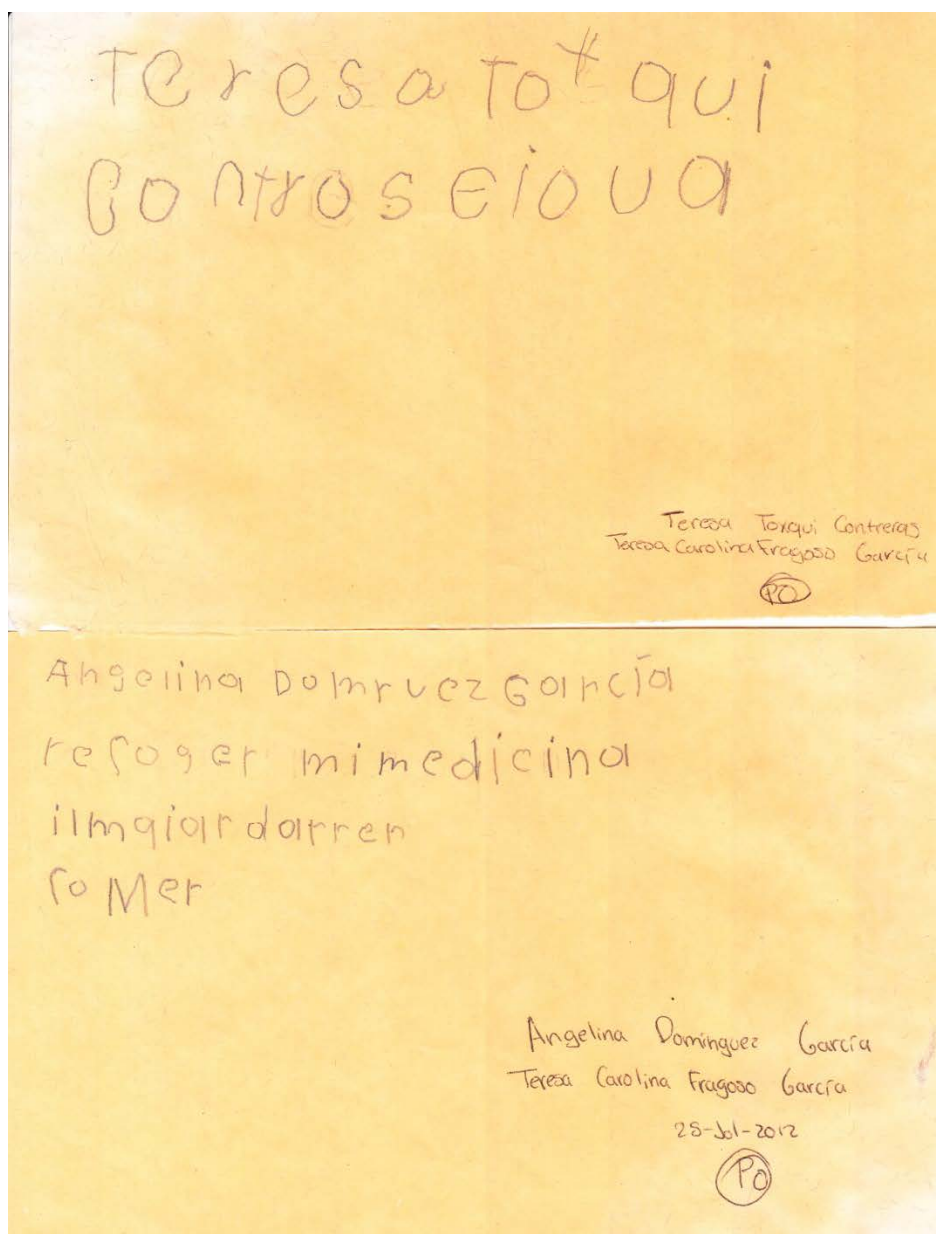 Teresa Toxqui
Controseioua
Teresa Toxqui Contreras
Teresa Carolina Fragoso García
PO
Angelina Domruez García
recoger mi medicina
ilmqiardarren
comer
Angelina Domínguez García
Teresa Carolina Fragoso García
25-Jul-2012
PO